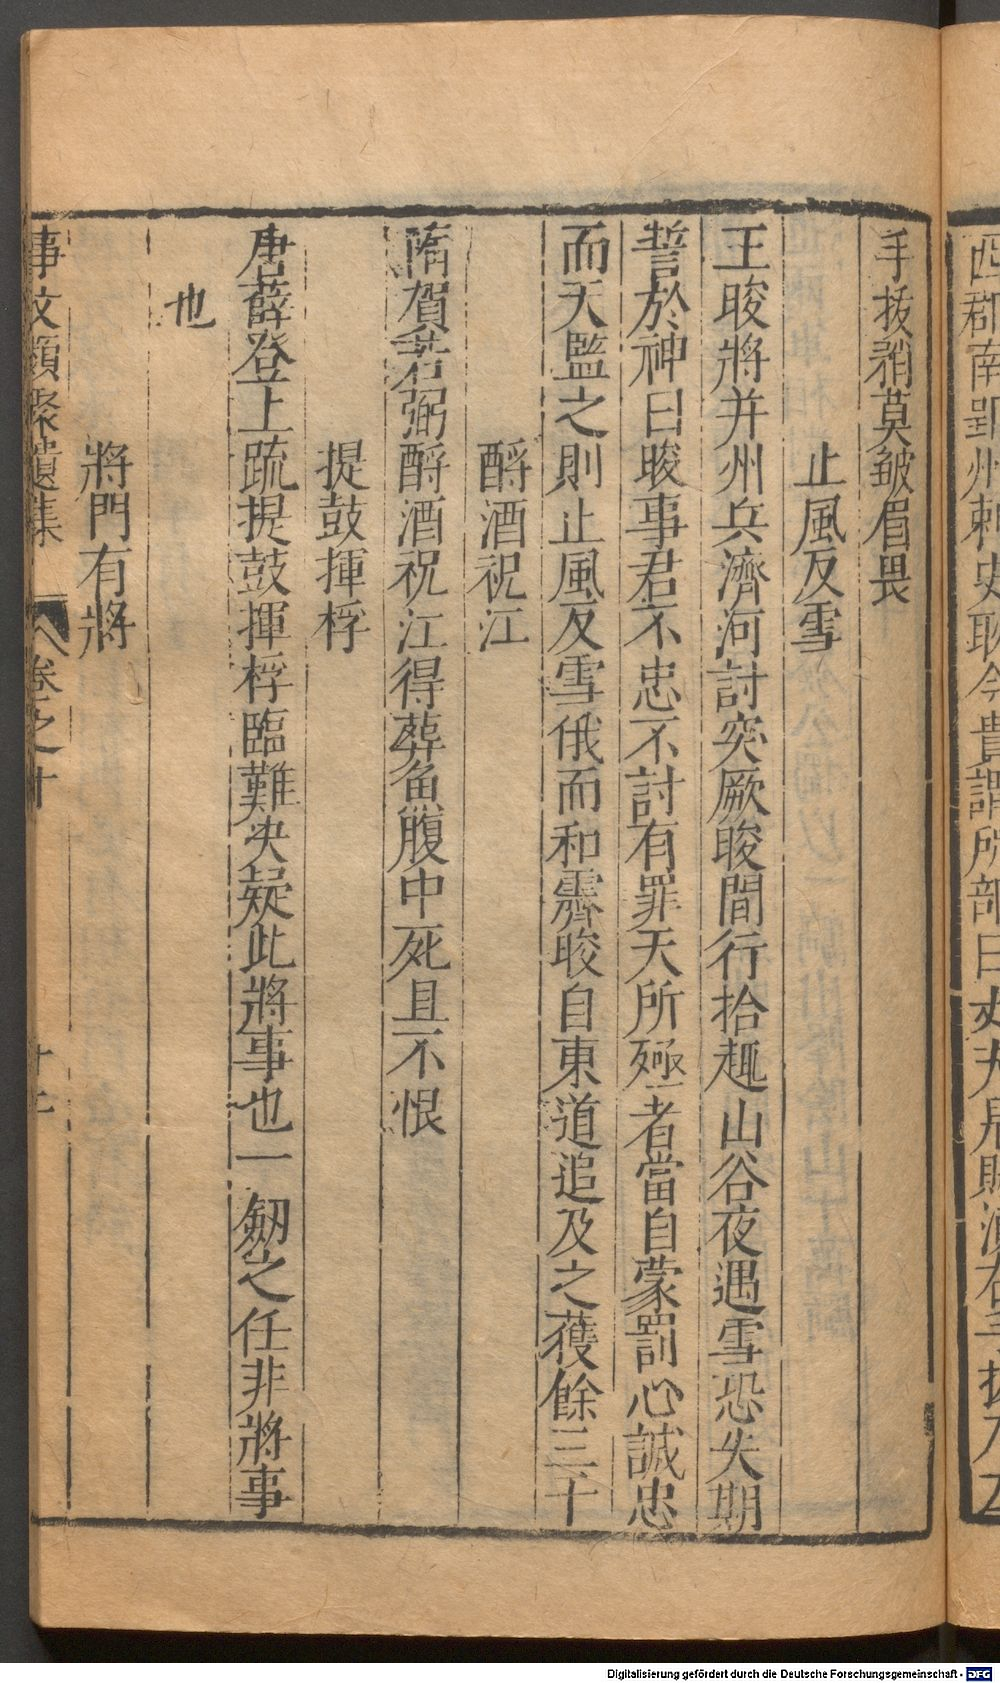 西郡南郢州刺史耿令貴謂所部曰丈夫
手拔矟莫皺眉畏
止風反雪
王晙將并州兵濟河討突厥晙間行拾趣山谷夜遇雪恐失期
誓於神曰晙事君不忠不討有罪天所殛者當自蒙罰心誠忠
而天監之則止風反雪俄而和霽晙自東道追及之獲餘三十
酹酒祝江
隋賀若弼酹酒祝江得葬魚腹中死且不恨
提鼓揮桴
唐薛登上疏提鼓揮桴臨難決疑此將事也一劒之任非將事
也
將門有將
事文類聚遺集 卷之十
Digitalisierung gefördert durch die Deutsche Forschungsgemeinschaft - DFG